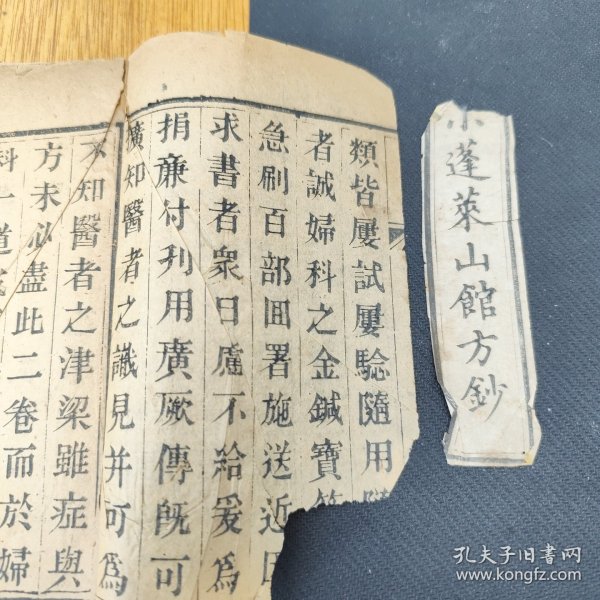 小蓬萊山館方鈔
類皆屢試屢騐隨用隨
者誠婦科之金鍼寶
急刷百部囬署施送近因
求書者衆日慮不給爰爲
捐亷付刋用廣厥傳旣可
擴知醫者之識見并可爲
不知醫者之津梁雖症與
方未必盡此二卷而於婦
科一道
孔夫子旧书网
www.kongfz.com